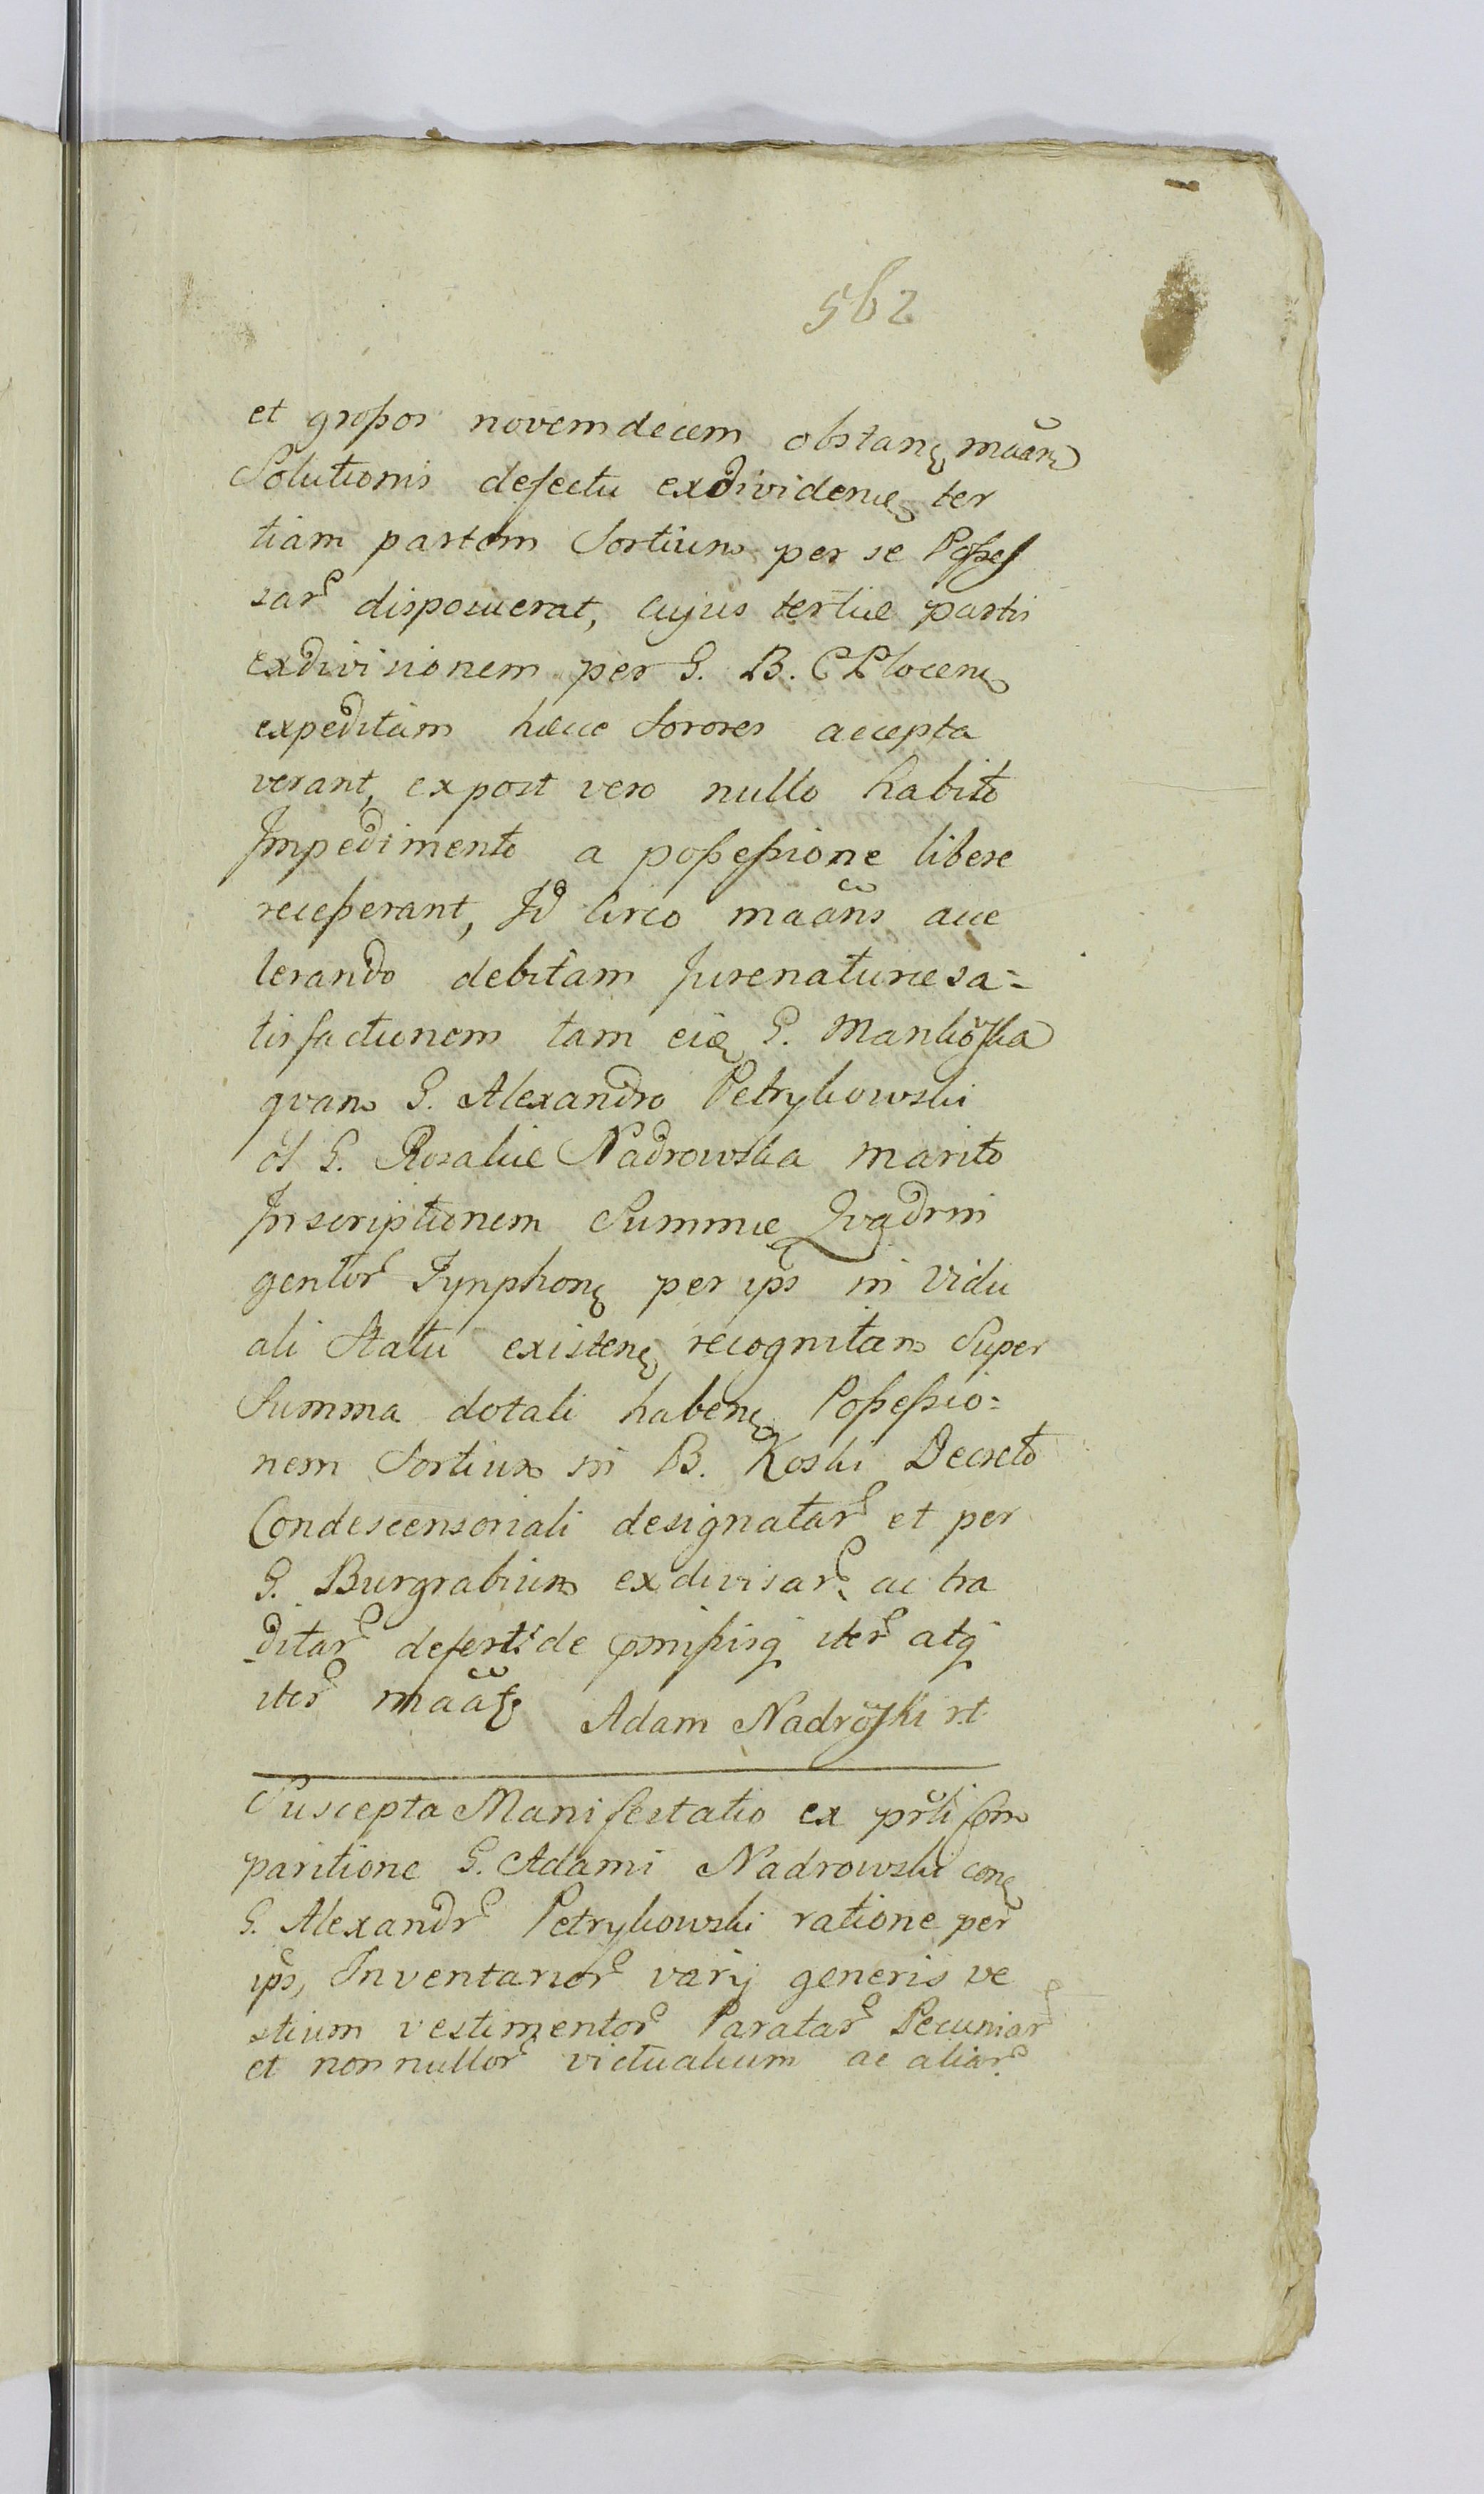 562
et grossos novemdecem obstanę maãm
Solutionis defectu exdividenę ter
tiam partem Sortium per se Posses
sar disposuerat, cujus tertiæ partis
exdivisionem per G. B. C Plocenę
expeditam hæcce Sorores accepta
verant, expost vero nullo habito
Impedimento a possessione libere
recesserant, Id circo maãns acce
lerando debitam Jurenaturæ sa=
tisfactionem tam eię G. Mankoska
quam G. Alexandro Petrykowski
ol G. Rosaliæ Nadrowska marito
Inscriptionem Summæ Quadrin
gentor Tynphonę per ips in vidu
ali Statu existenę recognitam Super
Summa dotali habenę Possessio=
nem Sortium in B. Koski Decreto
Condescensoriali designatar et per
G. Burgrabium exdivisar ac tra
ditar defert: de pmissisq iter atq
iter maãę Adam Nadroski rt
Suscepta Manifestatio ex prli Com
paritione G. Adami Nadrowski conę
G. Alexandr Petrykowski ratione per
ips, Inventarior varij generis ve
stium vestimentor Paratar Pecuniar
et nonnullor victualium ac aliar